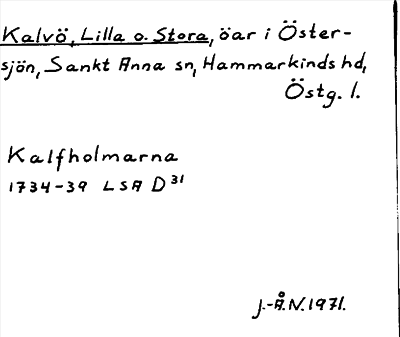 Kalvö, Lilla o. Stora, öar i Öster-
sjön, Sankt Anna sn, Hammarkinds hd,
Östg. l.
Kalfholmarna
1734-39 LSA D³¹
J.-Å.N. 1971.